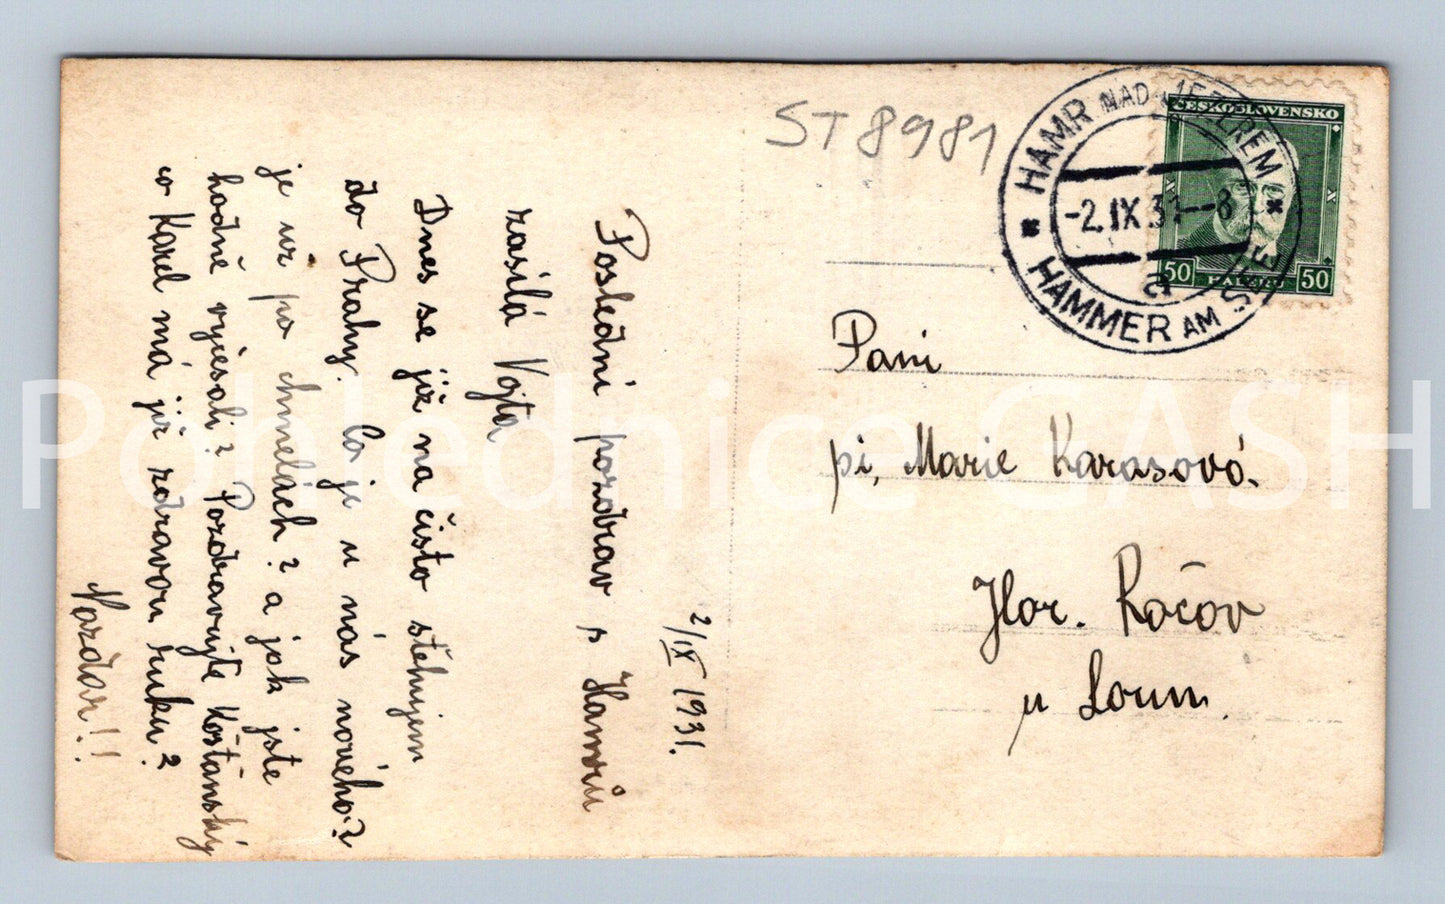 ST 8981
HAMR NAD JEZEREM
HAMMER AM SEE
-2.IX.31--8
a
ČESKOSLOVENSKO
50 HALÉŘŮ 50
2/IX 1931.
Poslední pozdrav s Hamrů
zasílá Vojta
Dnes se již na čisto stěhujem
do Prahy. Co je u nás nového?
je už po chmelách? a jak jste
hodně vyčesali? Pozdravujte Košťánský
co Karel má již zdravou ruku?
Nazdar!!
Paní
pí, Marie Karasová.
Hor. Ročov
u Loun.
Pohlednice GASH